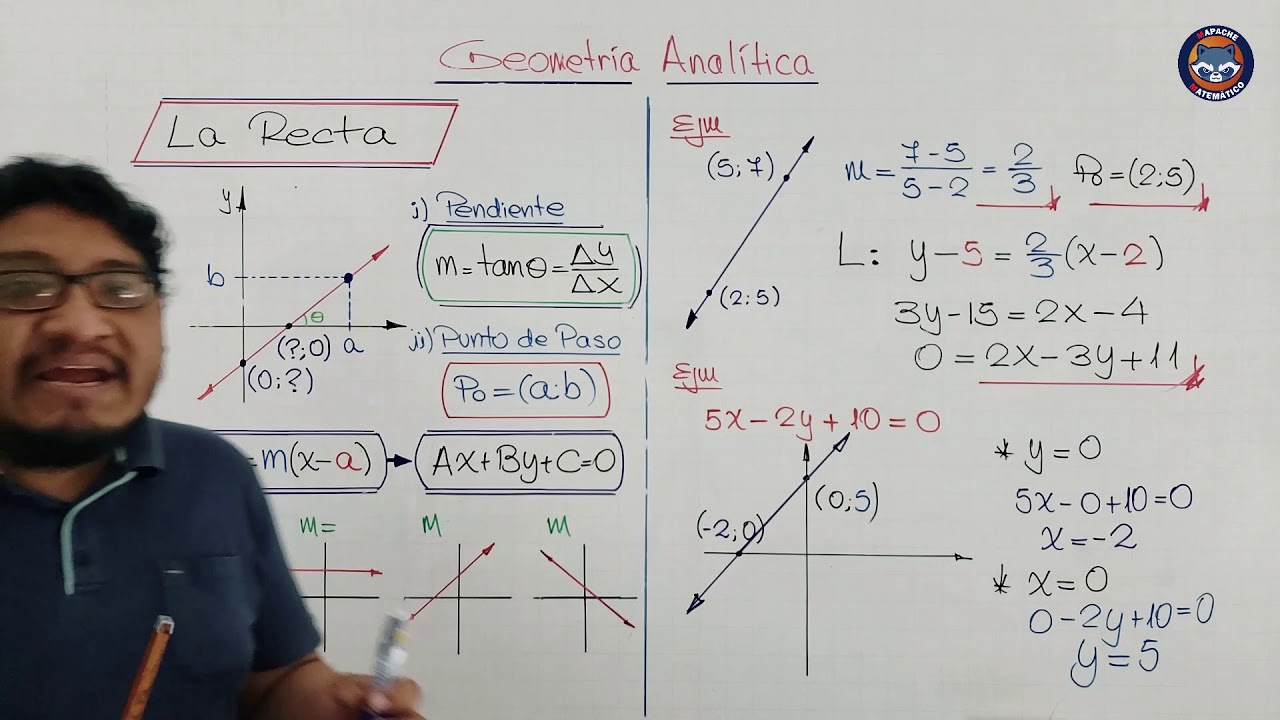 Geometría Analítica
MAPACHE
MATEMÁTICO
La Recta
y
b
θ
(?;0) a
(0;?)
i) Pendiente
m=tanθ=Δy/Δx
ii) Punto de Paso
Po=(a;b)
=m(x-a)
Ax+By+C=0
m=
m
m
Ejm
(5;7)
(2;5)
m=7-5/5-2=2/3
Po=(2;5)
L: y-5=2/3(x-2)
3y-15=2x-4
0=2x-3y+11
Ejm
5x-2y+10=0
(0;5)
(-2;0)
* y=0
5x-0+10=0
x=-2
* x=0
0-2y+10=0
y=5